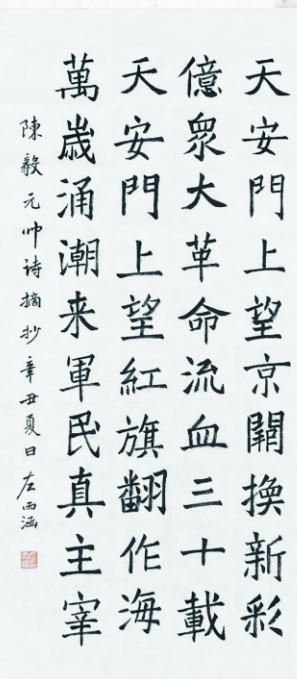 天安門上望京闕換新彩
億眾大革命流血三十載
天安門上望紅旗翻作海
萬歲涌潮来軍民真主宰
陳毅元帅诗摘抄辛丑夏日左雨涵